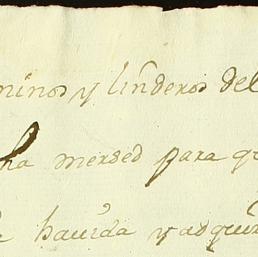 minos y linderos del
ha mersed para q
havida y adquir